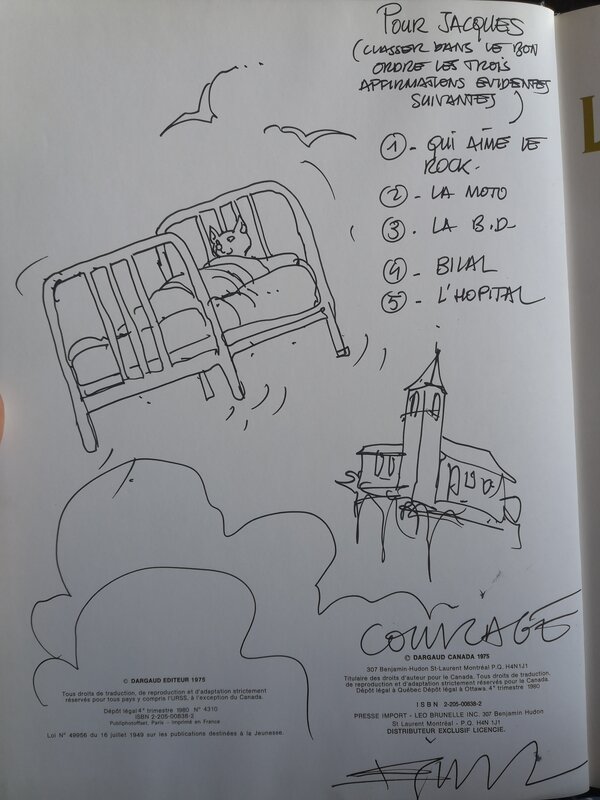 POUR JACQUES
(CLASSER DANS LE BON
ORDRE LES TROIS
AFFIRMATIONS EVIDENTES
SUIVANTES)
① - QUI AIME LE
ROCK.
② - LA MOTO
③ - LA B.D
④ - BILAL
⑤ - L'HOPITAL
L
COURAGE
© DARGAUD EDITEUR 1975
Tous droits de traduction, de reproduction et d'adaptation strictement
réservés pour tous pays y compris l'URSS, à l'exception du Canada.
Dépôt légal 4ᵉ trimestre 1980 N° 4310
ISBN 2-205-00838-2
Publiphotoffset, Paris - Imprimé en France
Loi N° 49956 du 16 juillet 1949 sur les publications destinées à la Jeunesse.
© DARGAUD CANADA 1975
307 Benjamin-Hudon St-Laurent Montréal P.Q. H4N1J1
Titulaire des droits d'auteur pour le Canada. Tous droits de traduction,
de reproduction et d'adaptation strictement réservés pour le Canada.
Dépôt légal à Québec Dépôt légal à Ottawa. 4ᵉ trimestre 1980
ISBN 2-205-00838-2
PRESSE IMPORT - LEO BRUNELLE INC. 307 Benjamin Hudon
St-Laurent Montréal - P.Q. H4N 1J1
DISTRIBUTEUR EXCLUSIF LICENCIE.